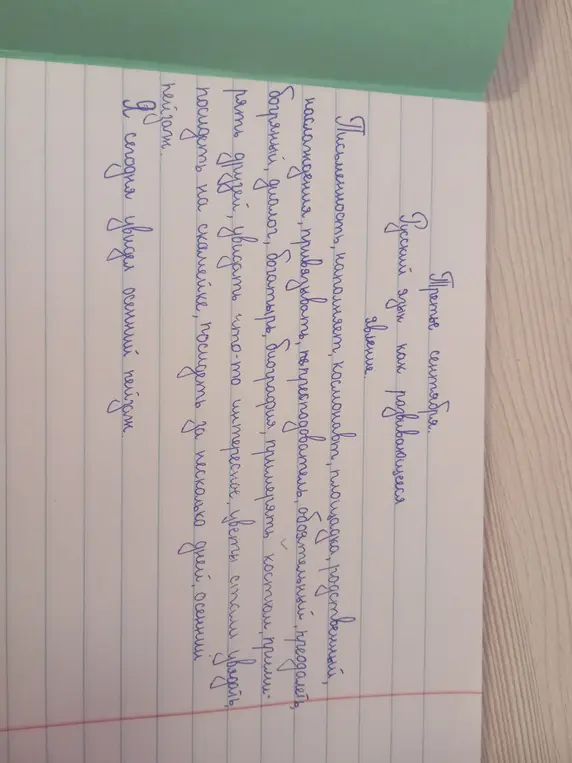 Третье сентября.
Русский язык как развивающееся
явление.
Письменность, наполняет, космонавт, площадка, родственный,
наслаждения, привязывать, преподователь, обоятельный, преодалеть,
багряный, диалог, богатырь, биография, примерять костюм, прими-
рять друзей, увидать что-то интересное, цветы стали увядать,
посидеть на скамейке, посидеть за несколько дней, осенний
пейзаж.
Я сегодня увидел осенний пейзаж.